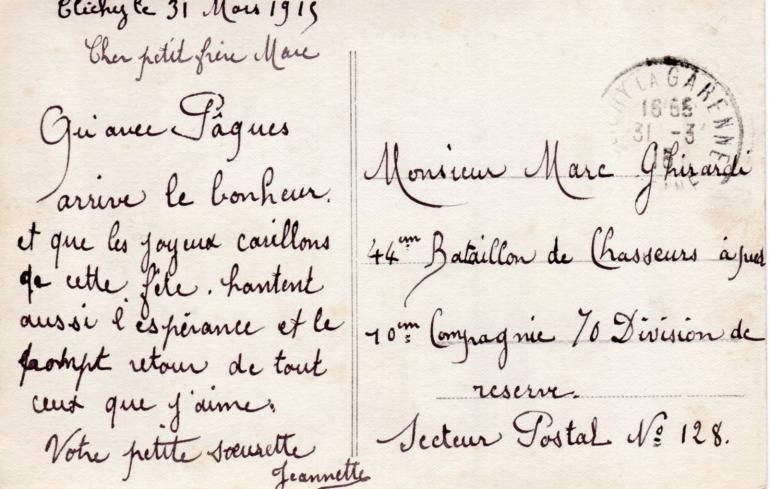 Clichy le 31 Mars 1915
Cher petit frère Marc
Qu'avec Pâques
arrive le bonheur.
et que les joyeux carillons
de cette fête. hantent
aussi l'espérance et le
prompt retour de tout
ceux que j'aime.
Votre petite sœurette
Jeannette
LA GARENNE
31 -3
Monsieur Marc Ghirardi
44em Bataillon de Chasseurs à pied
10em Compagnie 70 Division de
reserve.
Secteur Postal No 128.